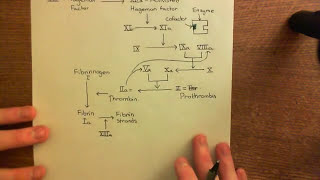 Hageman → XIIa = Activated
Factor Hageman factor Enzyme
XI → XIa cofactor
IX → IXa VIIIa
Fibrinogen Va Xa ← X
I
IIa ← II =
Thrombin Prothrombin
Fibrin → Fibrin
Ia Strands
XIIIa